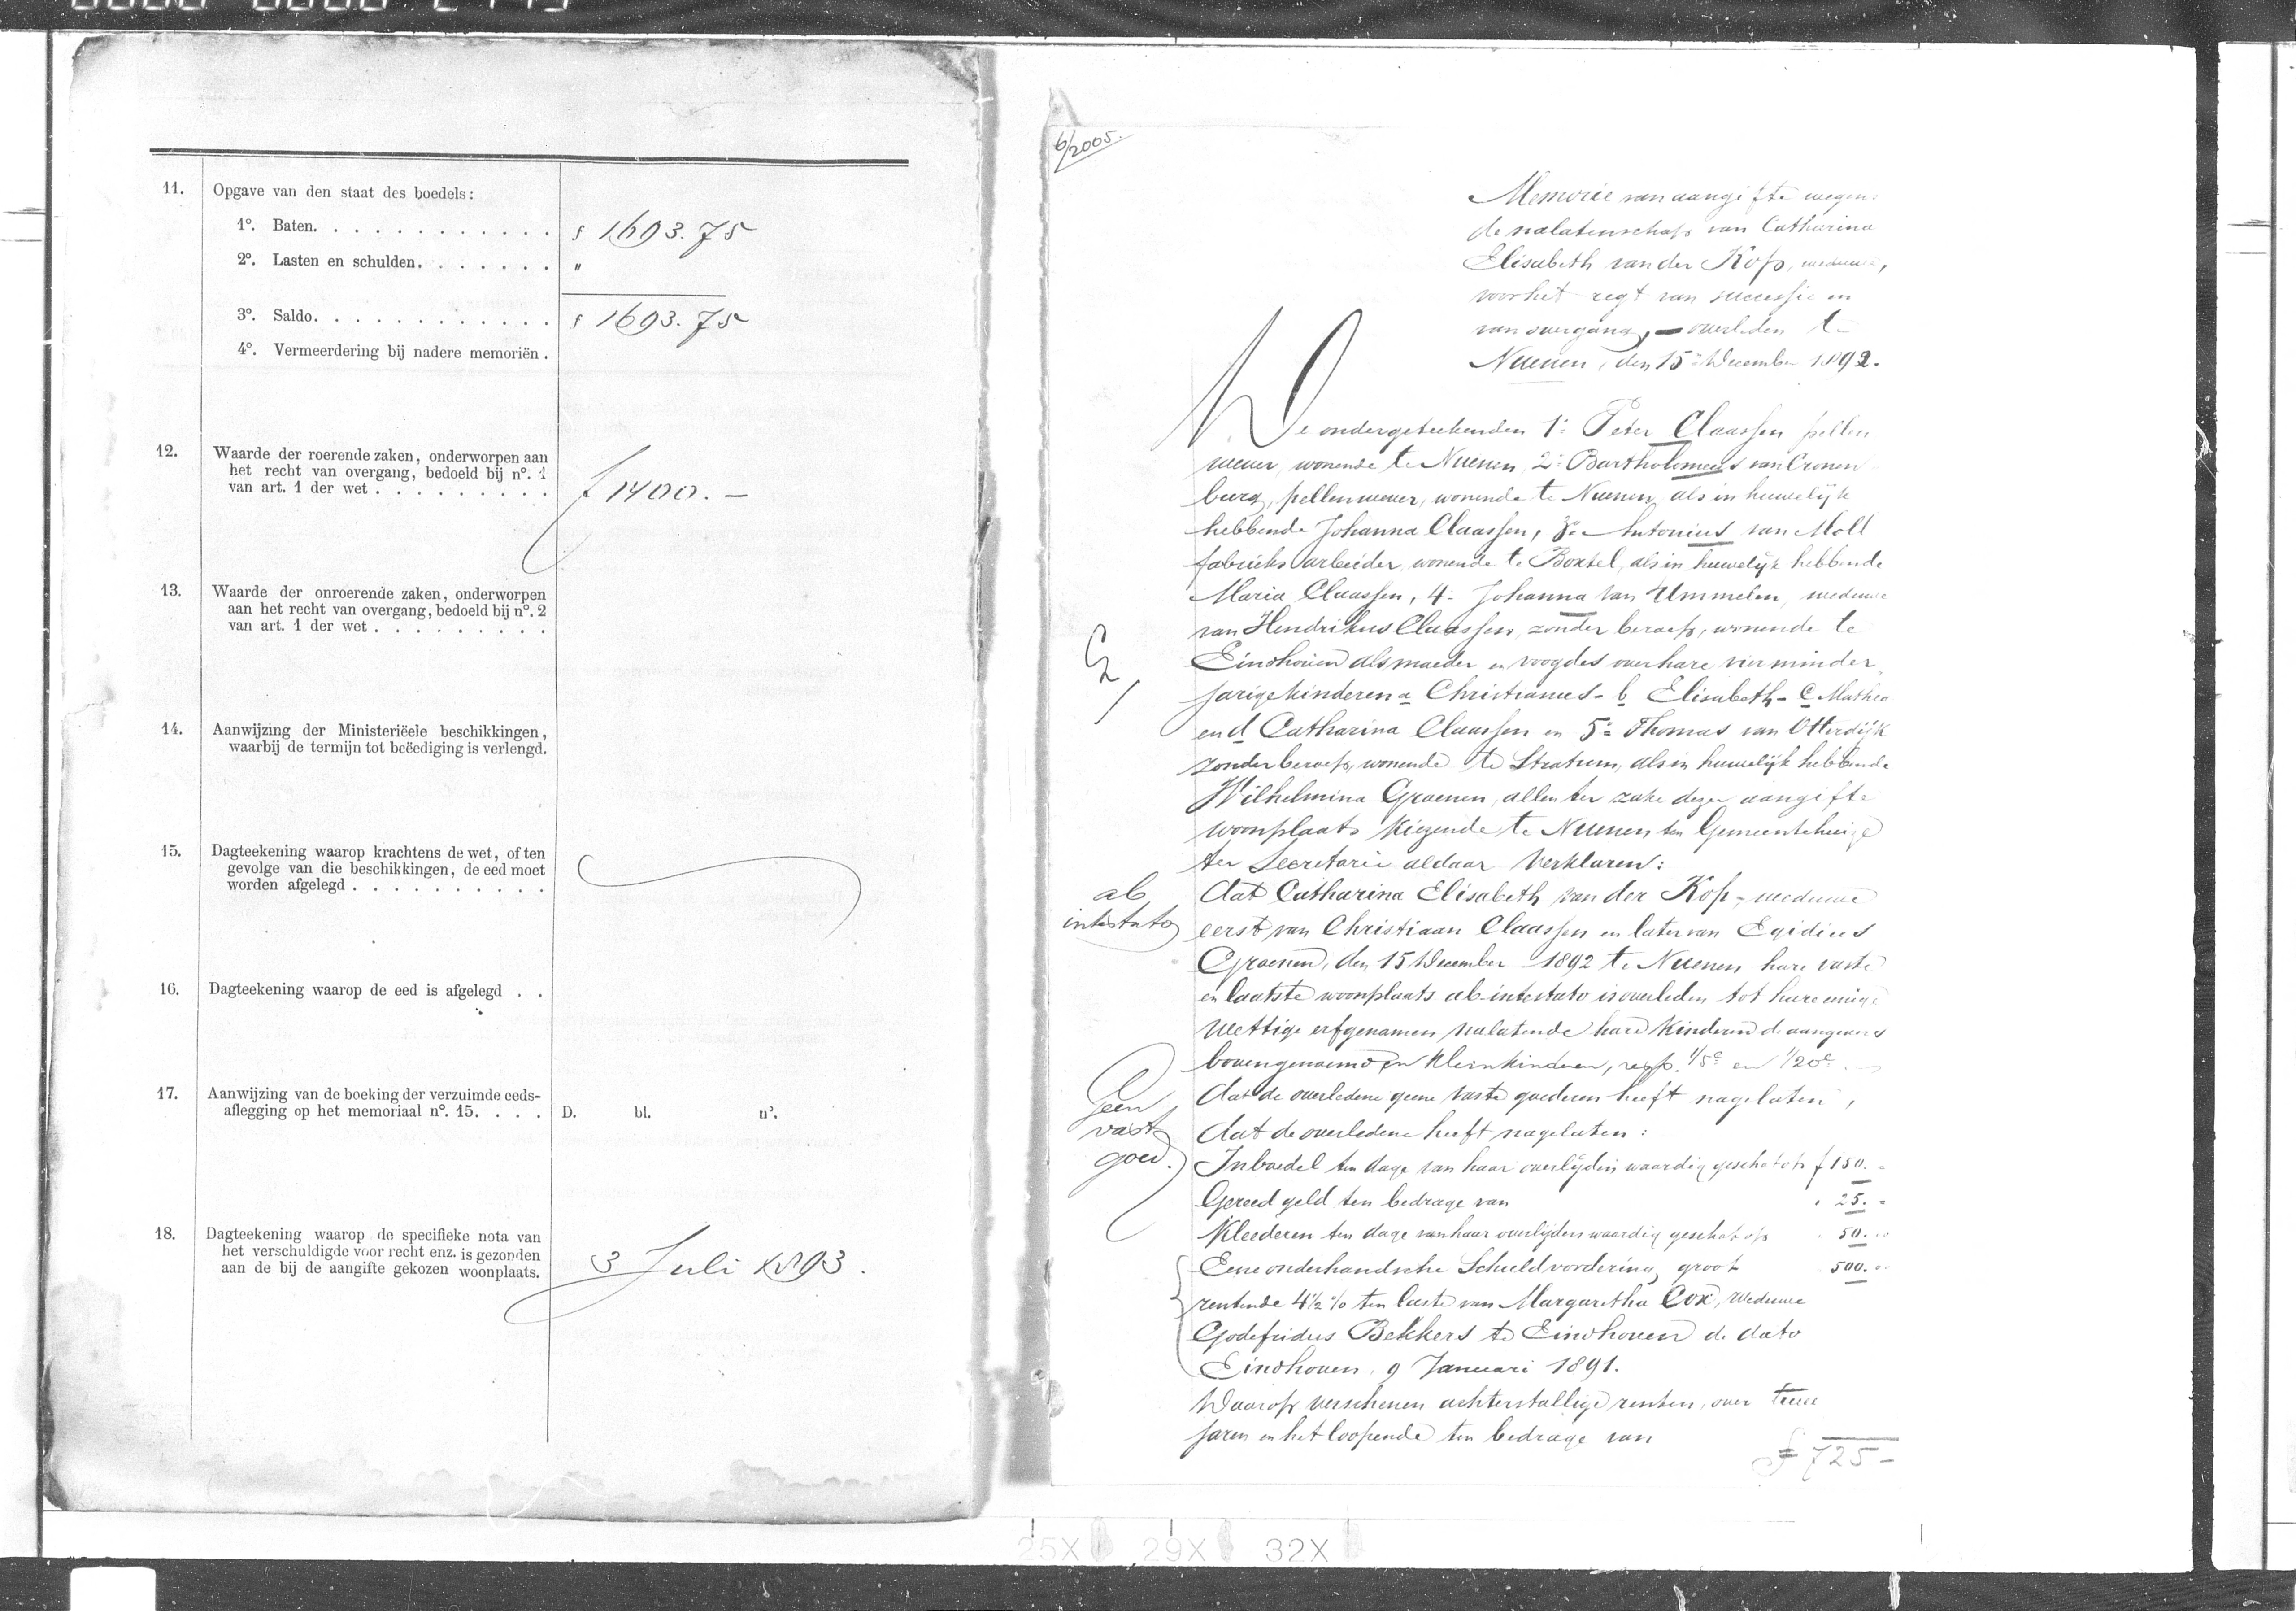 11. Opgave van den staat des boedels:
1º. Baten. . . . . . . . . . . . . f 1693.75
2º. Lasten en schulden. . . . . . . . "
3º. Saldo. . . . . . . . . . . . . f 1693.75
4º. Vermeerdering bij nadere memoriën .
12. Waarde der roerende zaken, onderworpen aan
het recht van overgang, bedoeld bij nº. 1
van art. 1 der wet . . . . . . . . . f 1400.-
13. Waarde der onroerende zaken, onderworpen
aan het recht van overgang, bedoeld bij nº. 2
van art. 1 der wet . . . . . . . . .
14. Aanwijzing der Ministeriëele beschikkingen,
waarbij de termijn tot beëediging is verlengd.
15. Dagteekening waarop krachtens de wet, of ten
gevolge van die beschikkingen, de eed moet
worden afgelegd . . . . . . . . . .
16. Dagteekening waarop de eed is afgelegd . .
17. Aanwijzing van de boeking der verzuimde eeds-
aflegging op het memoriaal nº. 15. . . . D. bl. nº.
18. Dagteekening waarop de specifieke nota van
het verschuldigde voor recht enz. is gezonden
aan de bij de aangifte gekozen woonplaats. 3 Juli 1893.
6/2005.
Memorie van aangifte wegens
de nalatenschap van Catharina
Elisabeth van der Kop, weduwe,
voor het regt van successie en
van overgang, - overleden te
Nuenen, den 15en December 1892.
De ondergeteekenden 1º Peter Claassen pellen
wever, wonende te Nuenen, 2º Bartholomeus van Cronen-
burg, pellenwever, wonende te Nuenen, als in huwelijk
hebbende Johanna Claassen, 3º Antonius van Moll
fabrieksarbeider, wonende te Boxtel, als in huwelijk hebbende
Maria Claassen, 4º Johanna van Ummelen, weduwe
van Hendrikus Claassen, zonder beroep, wonende te
Eindhoven als moeder en voogdes over hare vier minder
jarige kinderen a Christianus - b Elisabeth - c Mathea
en d Catharina Claassen en 5º Thomas van Otterdijk
zonder beroep, wonende te Stratum, als in huwelijk hebbende
Wilhelmina Groenen, allen ter zake dezer aangifte
woonplaats kiezende te Nuenen ten Gemeentehuize
ter Secretarie aldaar verklaren:
ab
intestato
dat Catharina Elisabeth van der Kop, weduwe
eerst van Christiaan Claassen en later van Egidius
Groenen, den 15 December 1892 te Nuenen hare vaste
en laatste woonplaats ab intestato is overleden tot hare eenige
wettige erfgenamen nalatende hare kinderen de aangevers
bovengenoemd en kleinkinderen, resp. 1/5e en 1/20e.
Geen
vast
goed.
dat de overledene geene vaste goederen heeft nagelaten,
dat de overledene heeft nagelaten:
Inboedel ten dage van haar overlijden waardig geschat op f 150.-
Gereed geld ten bedrage van " 25.-
Kleederen ten dage van haar overlijden waardig geschat op " 50.-
Eene onderhandsche Schuldvordering, groot 500.-
rentende 4 1/2 % ten laste van Margaretha Cox, Weduwe
Godefridus Bekkers te Eindhoven de dato
Eindhoven, 9 Januari 1891.
Waarop verschenen achterstallige renten, over twee
jaren en het loopende ten bedrage van
f 725-
25X 29X 32X